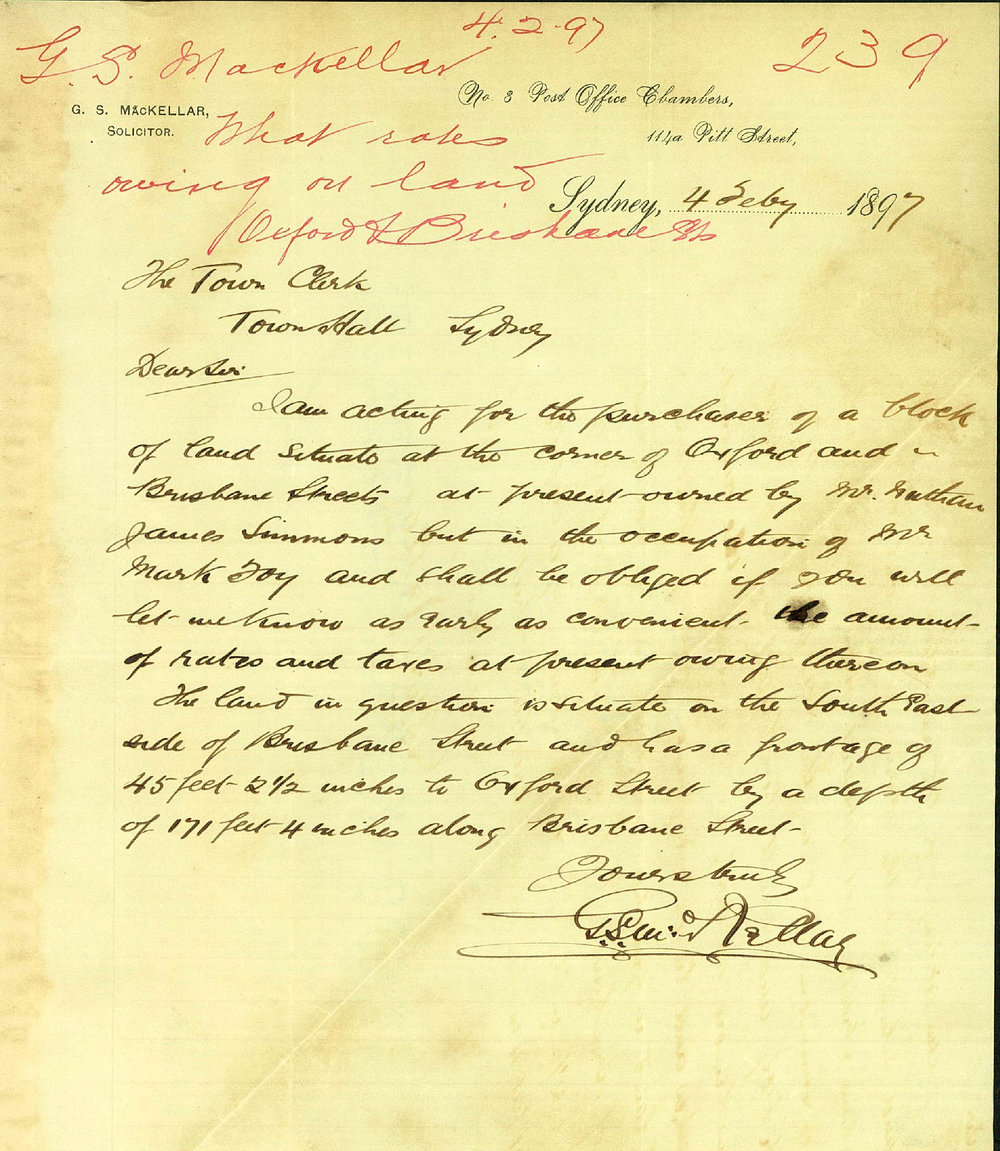 4.2.97
G. S. Mackellar
239
G. S. MacKELLAR,
SOLICITOR.
No. 8 Post Office Chambers,
114a Pitt Street,
What rates
owing on land
Oxford & Brisbane Sts
Sydney, 4 Feby 1897
The Town Clerk
Town Hall Sydney
Dear Sir
I am acting for the purchaser of a block
of land situate at the corner of Oxford and
Brisbane Streets at present owned by Mr. Nathan
James Simmons but in the occupation of Mr
Mark Foy and shall be obliged if you will
let me know as early as convenient the amount
of rates and taxes at present owing thereon
The land in question is situate on the South East
side of Brisbane Street and has a frontage of
45 feet 2½ inches to Oxford Street by a depth
of 171 feet 4 inches along Brisbane Street
Yours truly
G. S. MacKellar